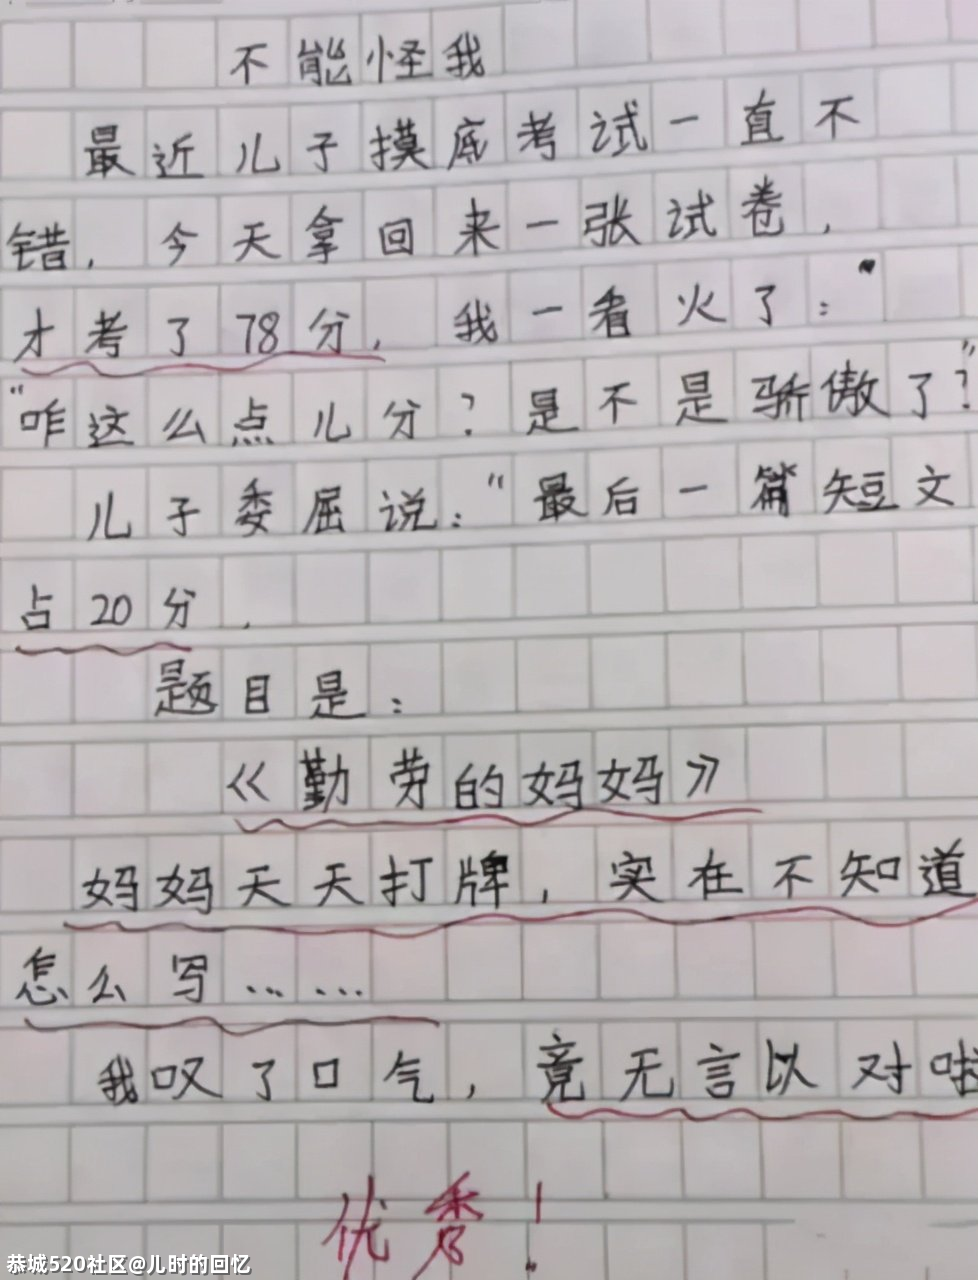 不能怪我
最近儿子摸底考试一直不
错，今天拿回来一张试卷，
才考了78分，我一看火了：
“咋这么点儿分？是不是骄傲了？”
儿子委屈说：“最后一篇短文
占20分．
题目是：
《勤劳的妈妈》
妈妈天天打牌，实在不知道
怎么写……
我叹了口气，竟无言以对啦
优秀！
恭城520社区@儿时的回忆